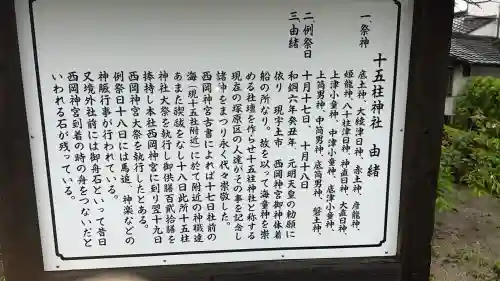 十五柱神社 由緒
一、祭神
底土神、大綾津日神、赤土神、彦龍神、
姫龍神、八十柱津日神、神直日神、大直日神、
上津小童神、中津小童神、底津小童神、
上筒男神、中筒男神、底筒男神、磐土神、
二、例祭日
十月十七日、十月十八日
三、由緒
和銅六年癸丑年、元明天皇の勅願に
依り 現宇土市 西岡神宮御神体着
船の所なり。故を以って海童神を崇
める社壇を作らせ十五柱神社と称する
現在の塚原区の人達がその事を記念し
諸神をまつり永く代々崇敬した。
西岡神宮古書によれば十七日社前の
海(現十五柱附近)に於て附近の神職達
あまた禊祓をなし十八日此所十五柱
神社大祭を執行し御供膳百貳拾膳を
捧持し本社西岡神宮に到り翌十九日
西岡神宮大祭を執行したとある。
例祭日十八日には馬追、神楽などの
神賑行事が行われている。
又境外社前には御舟石といって昔日
西岡神宮到着の時の舟をつないだと
いわれる石が残っている。